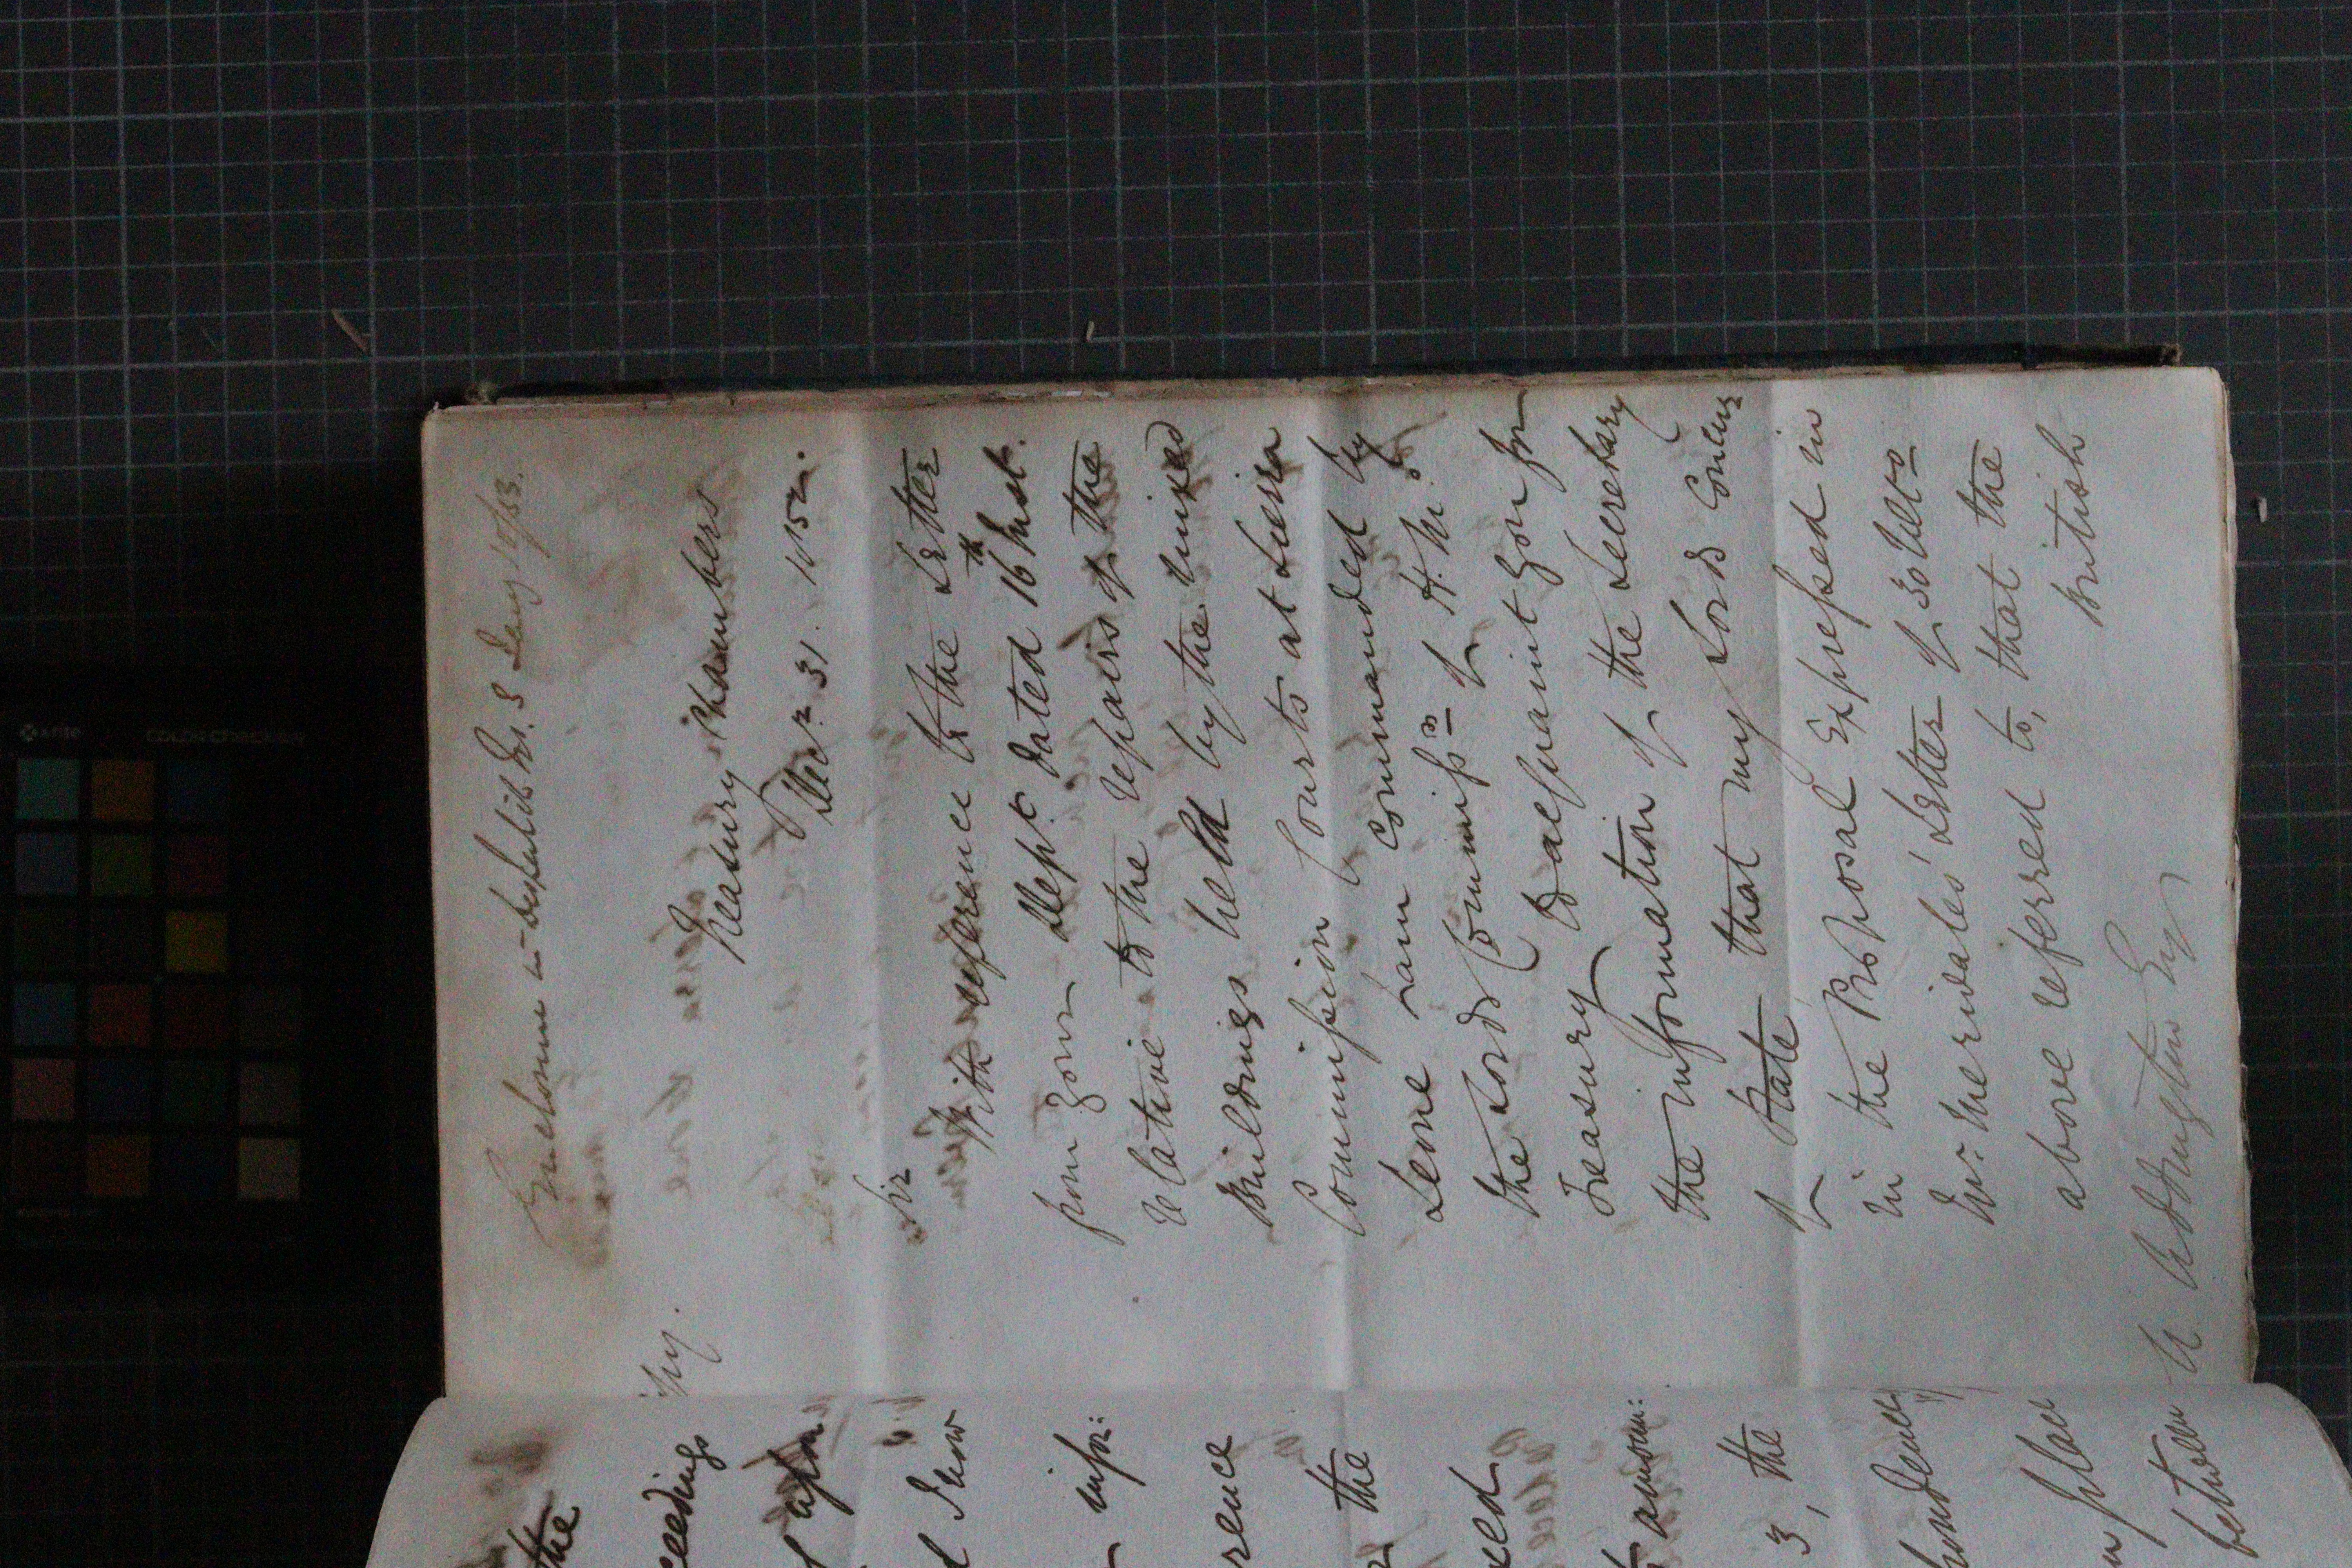 Enclosure in despatch No. 3 Jany 10/53.
Copy.
Treasury Chambers
Decr. 31. 1852.
Sir
With reference to the Letter
from your Dept. dated 16th Inst.
relative to the repairs of the
Buildings held by the Mixed
Commission Courts at Sierra
Leone I am commanded by
the Lords Commissrs of H. M.'s
Treasury to acquaint you for
the information of the Secretary
of State that my Lords Concur
in the Proposal Expressed in
Mr. Merivale's Letter of 30 Ulto
above referred to, that the
British
H. U. Addington Esqr
the
ceedings
upon
d Snow
infor:
rence
the
xed
amoun:
3, the
pondence
place
between
xrite